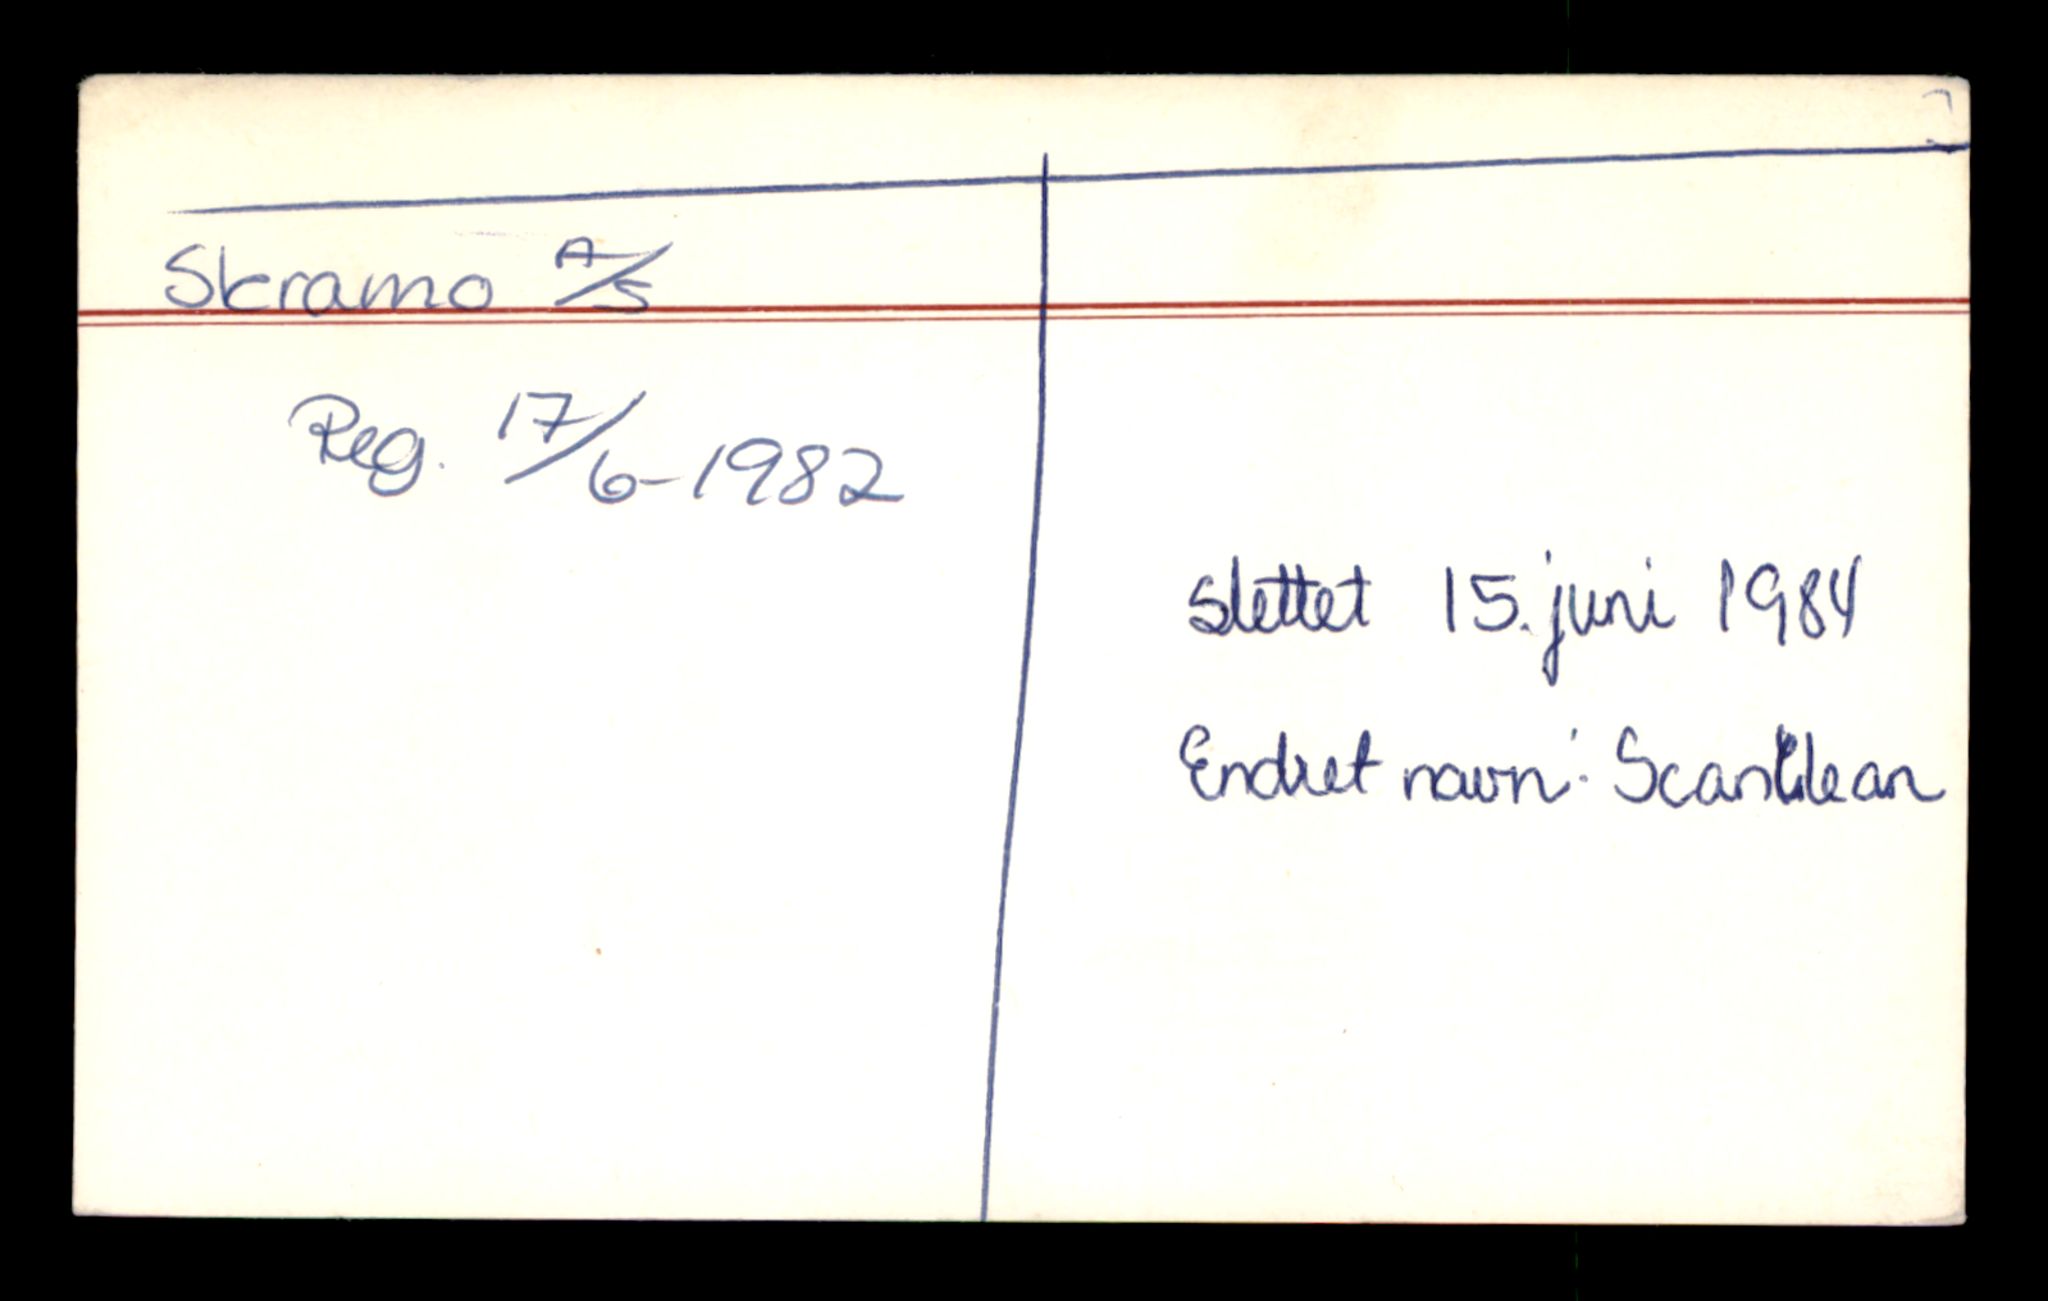 Skramo A/S
Reg. 17/6-1982
Slettet 15. juni 1984
Endret navn: ScanClean